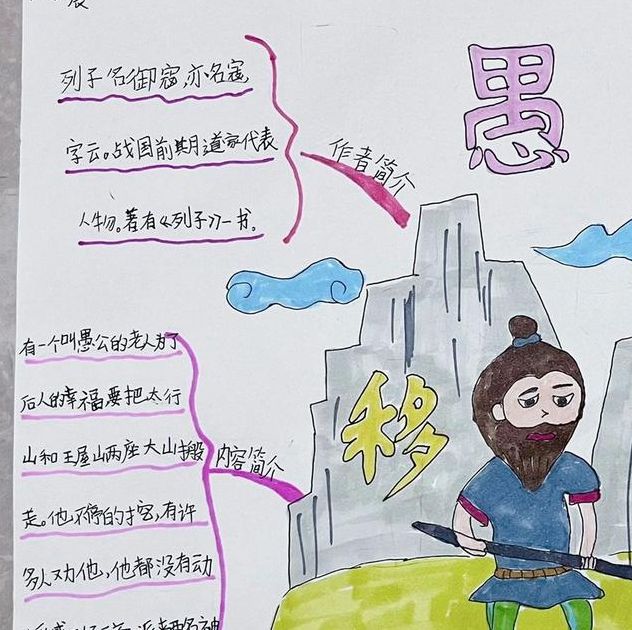 愚
列子名御寇,亦名寇,
字云。战国前期道家代表
人物。著有《列子》一书。
作者简介
移
有一个叫愚公的老人为了
后人的幸福要把太行
山和王屋山两座大山搬
走。他不停的挖,有许
多人劝他,他都没有动
内容简介